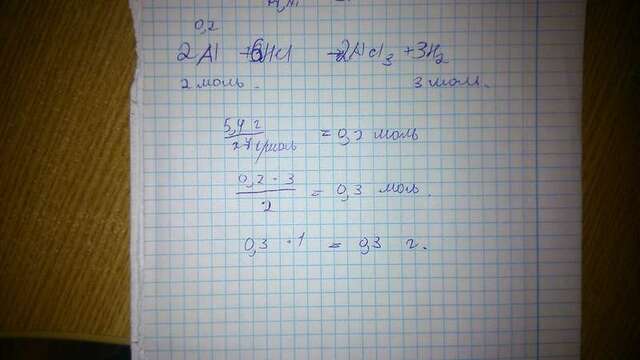 0,2
2Al + 6HCl → 2AlCl3 + 3H2
2 моль. 3 моль.
5,4 г / 27 г/моль = 0,2 моль
0,2 · 3 / 2 = 0,3 моль.
0,3 · 1 = 0,3 г.